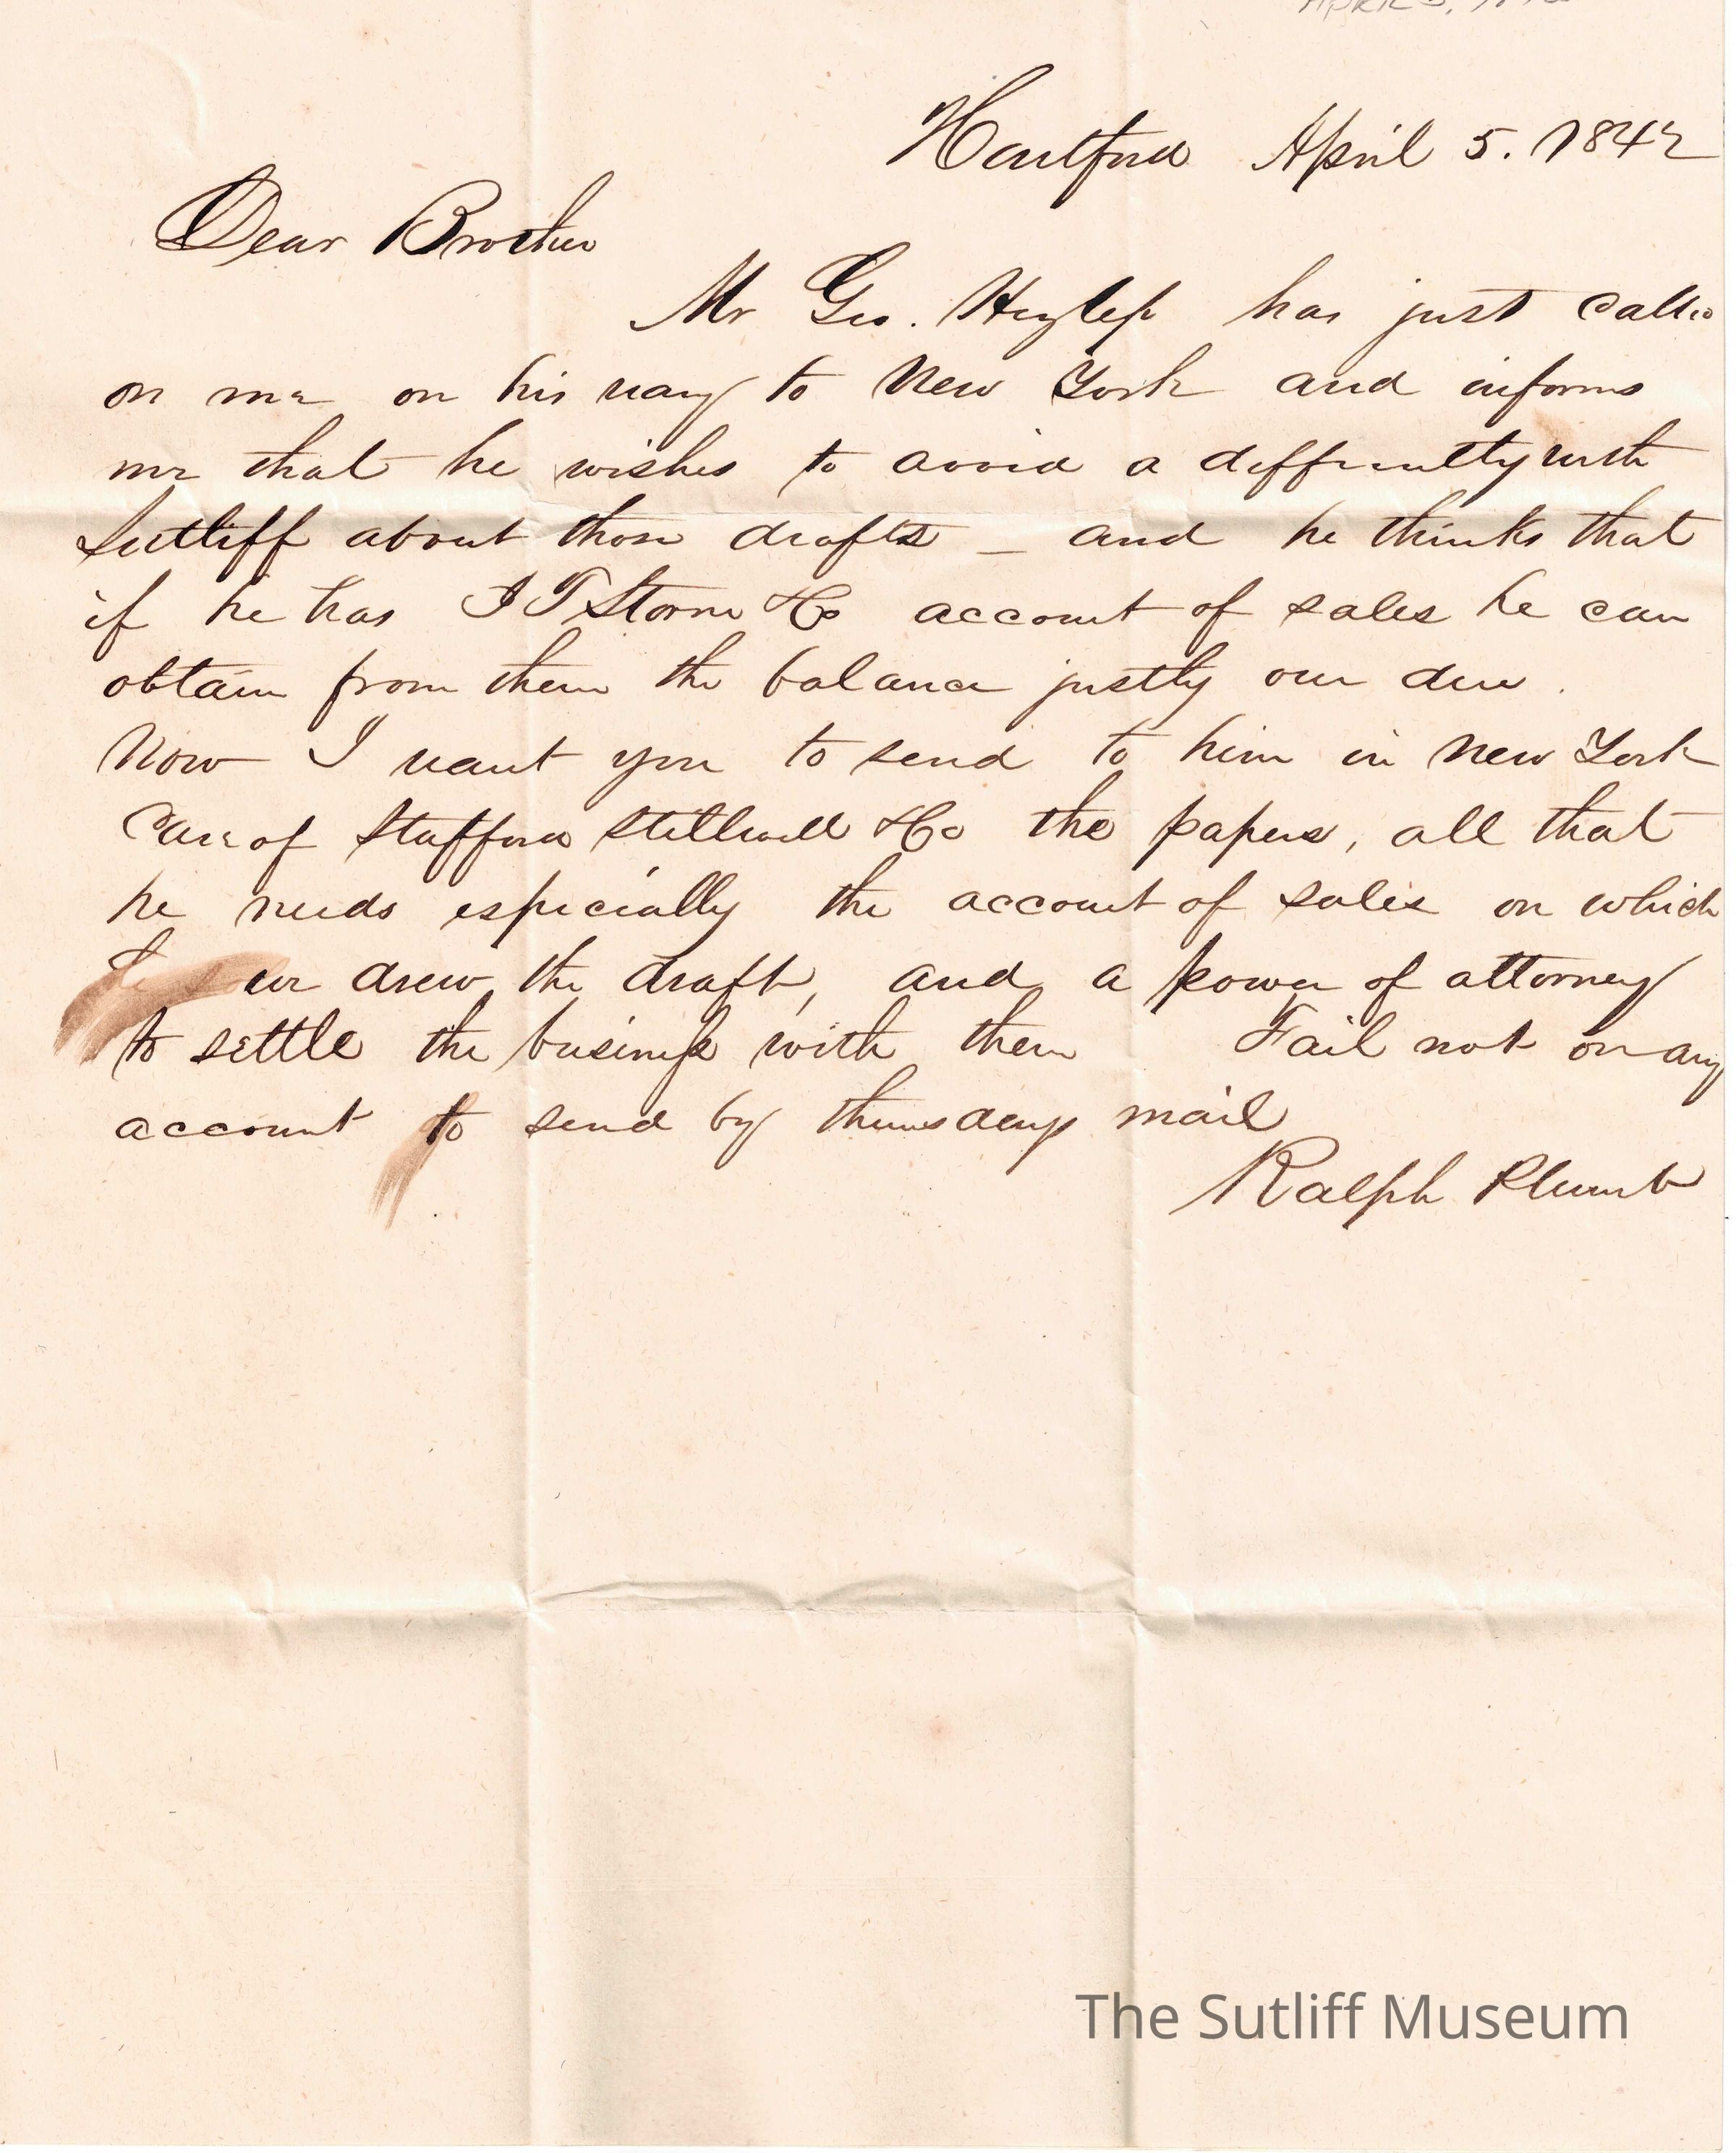 Hartford April 5. 1842
Dear Brother
Mr Geo. has just called
on me on his way to New York and informs
me that he wishes to avoid a difficulty with
Sutliff about those drafts — and he thinks that
if he has I T Storm & Co account of sales he can
obtain from them the balance justly our due.
Now I want you to send to him in New York
Care of Stafford Stillwell & Co the papers, all that
he needs especially the account of sales on which
we drew the draft, and a power of attorney
to settle the business with them Fail not on any
account to send by thursdays mail
Ralph Plumb
The Sutliff Museum